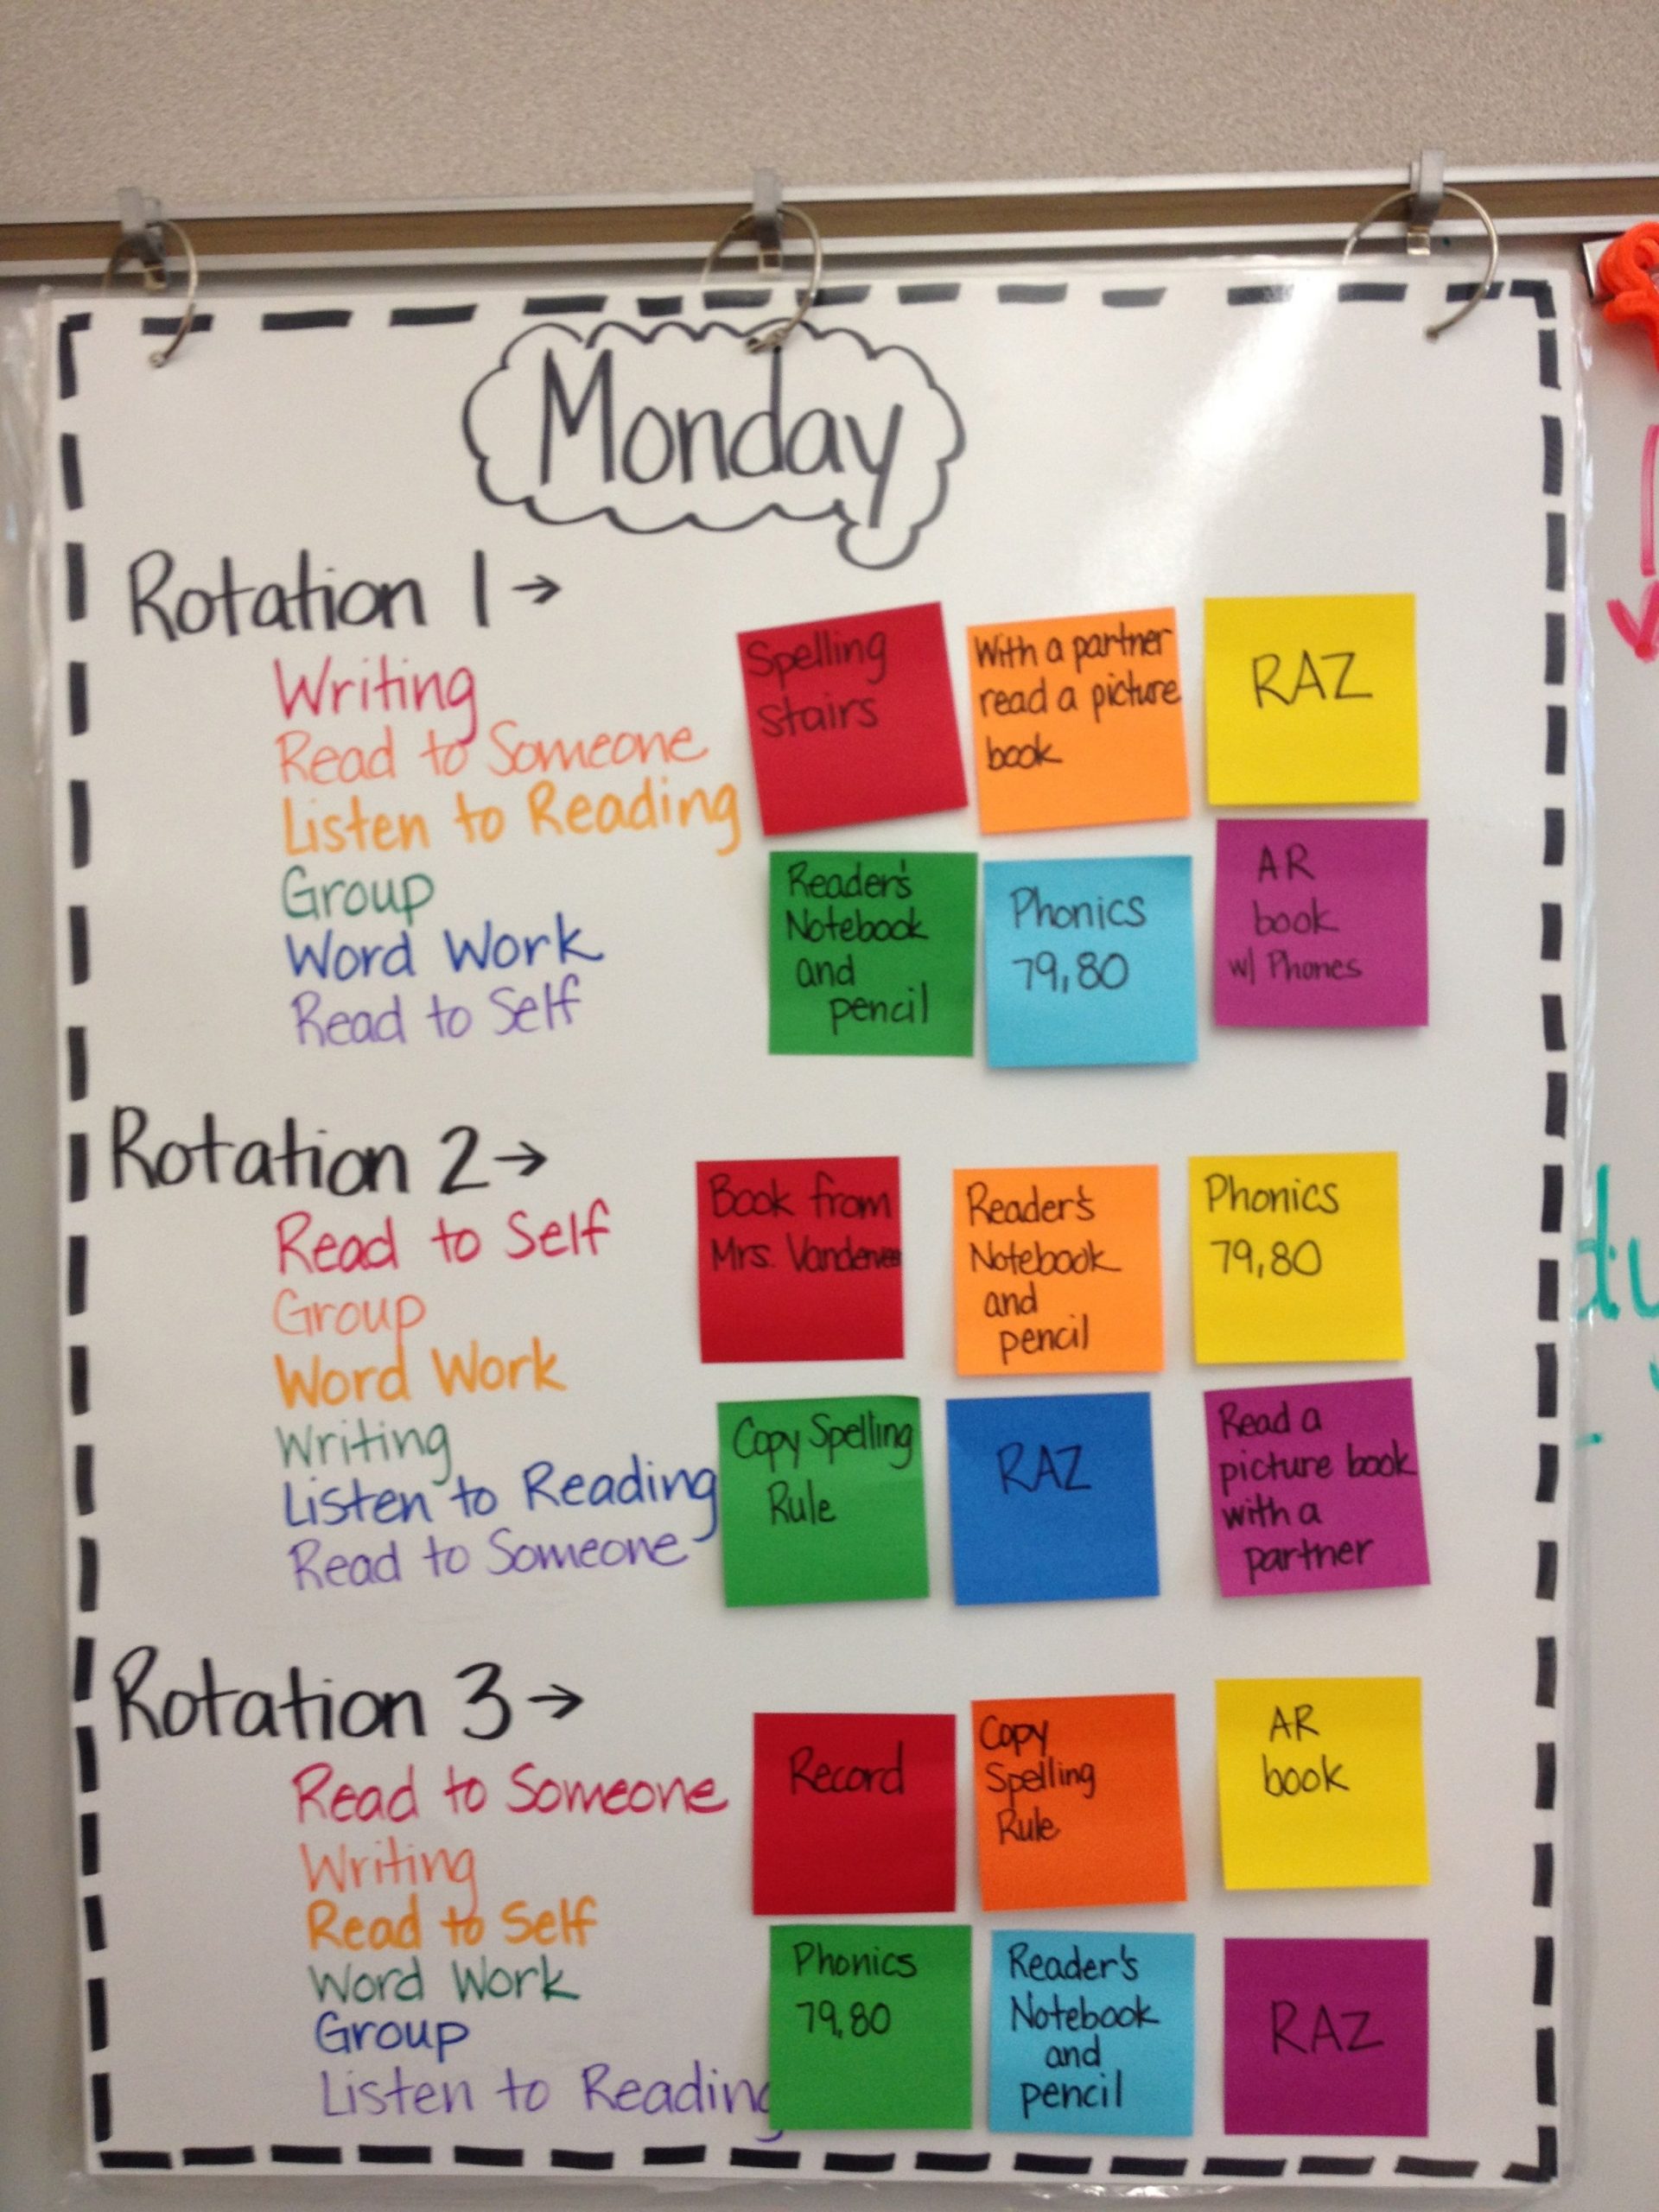 Monday
Rotation 1→
Writing
Read to Someone
Listen to Reading
Group
Word Work
Read to Self
Spelling
stairs
With a partner
read a picture
book
RAZ
Reader's
Notebook
and
pencil
Phonics
79,80
AR
book
w/ Phones
Rotation 2→
Read to Self
Group
Word Work
Writing
Listen to Reading
Read to Someone
Book from
Mrs.
Reader's
Notebook
and
pencil
Phonics
79,80
Copy Spelling
Rule
RAZ
Read a
picture book
with a
partner
Rotation 3→
Read to Someone
Writing
Read to Self
Word Work
Group
Listen to Reading
Record
Copy
Spelling
Rule
AR
book
Phonics
79,80
Reader's
Notebook
and
pencil
RAZ